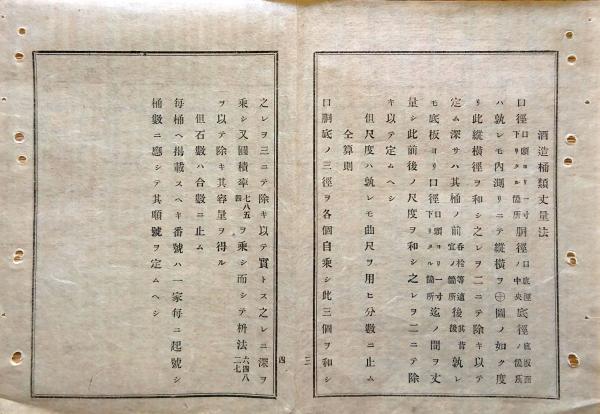 酒造桶類丈量法
口徑口頭ヨリ一寸下リタル箇所胴徑口底徑ノ中央底徑底板面ノ箇所
ハ孰レモ內測リニテ縱橫ヲ圖ノ如ク度
リ此縱橫徑ヲ和シ之レヲ二ニテ除キ以テ
定ム深サハ其桶ノ前吞栓等適宜ノ箇所後其背後孰レ
モ底板ヨリ口徑口頭ヨリ一寸下リタル箇所迄ノ間ヲ丈
量シ此前後ノ尺度ヲ和シ之レヲ二ニテ除
キ以テ定ムヘシ
但尺度ハ孰レモ曲尺ヲ用ヒ分數ニ止ム
仝算則
口胴底ノ三徑ヲ各個自乘シ此三個ヲ和シ
三
之レヲ三ニテ除キ以テ實トス之レニ深ヲ
乘シ又圓積率七八五四ヲ乘シ而シテ枡法六四八二七
ヲ以テ除キ其容量ヲ得ル
但石數ハ合數ニ止ム
每桶ヘ揭載スヘキ番號ハ一家每ニ起號シ
桶數ニ應シテ其順號ヲ定ムヘシ
四